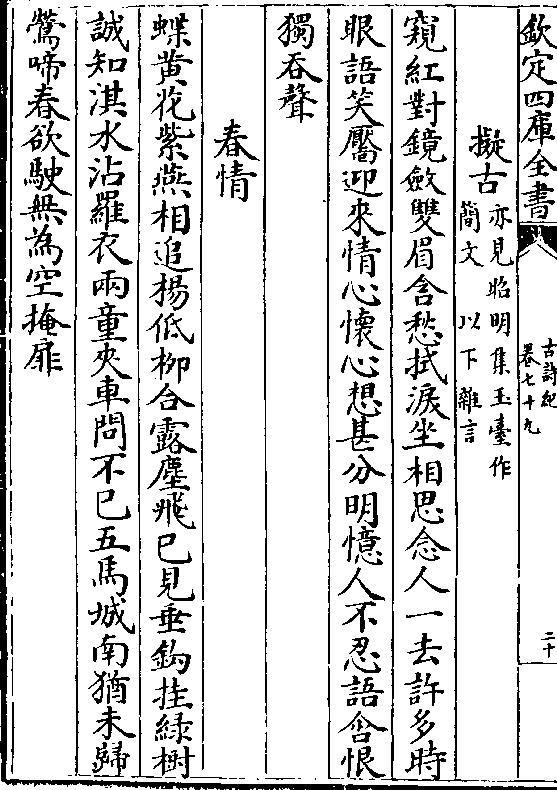 欽定四庫全書
古詩紀
卷七十九
二十
擬古
亦見昭明集玉臺作
簡文 以下雜言
窺紅對鏡斂雙眉含愁拭淚坐相思念人一去許多時
眼語笑靨迎來情心懷心想甚分明憶人不忍語含恨
獨吞聲
春情
蝶黄花紫燕相追楊低柳合露塵飛已見垂鈎挂綠樹
誠知淇水沾羅衣兩童夾車問不已五馬城南猶未歸
鶯啼春欲駛無為空掩扉